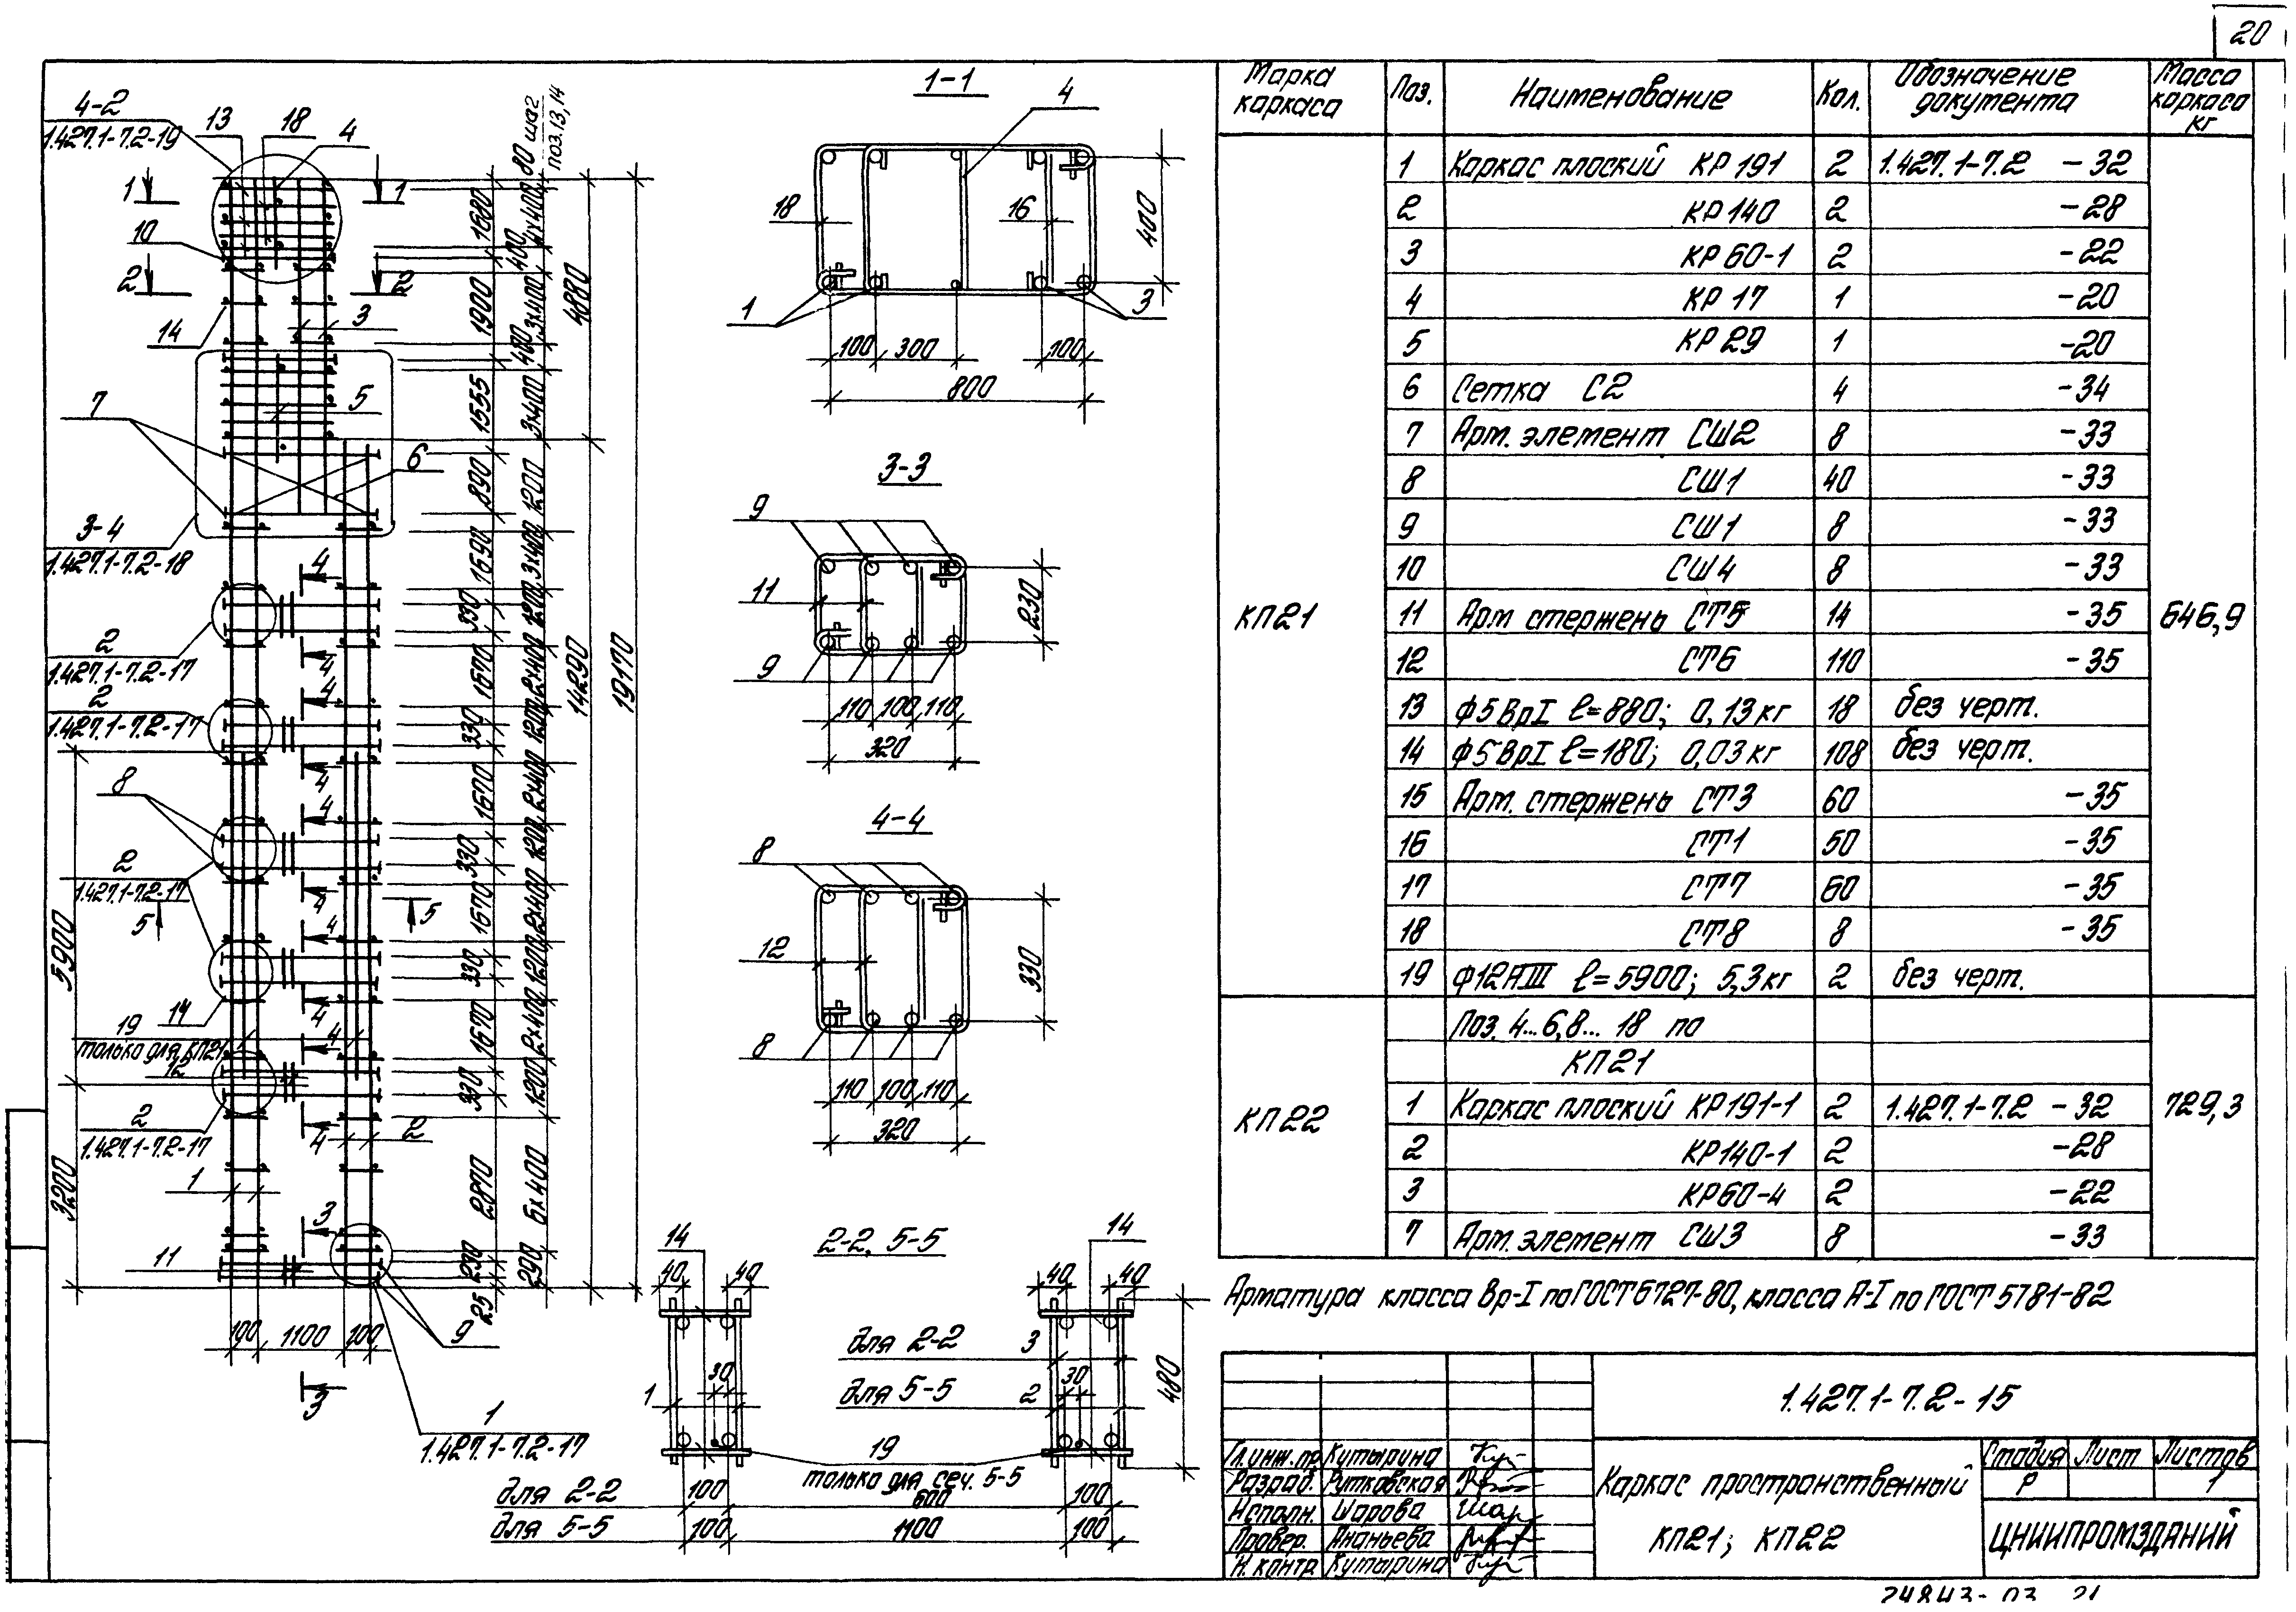 20
4-2
1.427.1-7.2-19
13
18
4
80 шаг
поз. 13, 14
1
1
10
2
2
14
3
7
5
6
3-4
1.427.1-7.2-18
4
2
1.427.1-7.2-17
4
4
2
1.427.1-7.2-17
4
8
4
2
1.427.1-7.2-17
4
5
5
4
14
4
19
только для КП21
4
12
2
1.427.1-7.2-17
4
2
1
3
11
9
3
1
1.427.1-7.2-17
5900
3200
100
1100
100
1680
1900
1555
890
1690
330
1670
330
1670
330
1670
330
1670
330
2870
230
25
4х400
400
3х400
480
3х400
1200
3х400
1200
2х400
1200
2х400
1200
2х400
1200
2х400
1200
6х400
290
4880
14290
19170
1-1
4
18
16
1
3
400
100
300
100
800
3-3
9
11
9
230
110
100
110
320
4-4
8
12
8
330
110
100
110
320
2-2, 5-5
14
14
40
40
40
40
для 2-2
3
для 5-5
2
1
30
30
480
19
только для сеч. 5-5
для 2-2
100
600
100
для 5-5
100
1100
100
Марка каркаса Поз. Наименование Кол. Обозначение документа Масса каркаса кг
КП21 646,9
1 Каркас плоский КР191 2 1.427.1-7.2 -32
2 КР140 2 -28
3 КР60-1 2 -22
4 КР17 1 -20
5 КР29 1 -20
6 Сетка С2 4 -34
7 Арм. элемент СШ2 8 -33
8 СШ1 40 -33
9 СШ1 8 -33
10 СШ4 8 -33
11 Арм стержень СТ5 14 -35
12 СТ6 110 -35
13 ф5ВрI l=880; 0,13кг 18 без черт.
14 ф5ВрI l=180; 0,03кг 108 без черт.
15 Арм. стержень СТ3 60 -35
16 СТ1 50 -35
17 СТ7 60 -35
18 СТ8 8 -35
19 ф12АIII l=5900; 5,3кг 2 без черт.
КП22 729,3
Поз. 4...6, 8... 18 по
КП21
1 Каркас плоский КР191-1 2 1.427.1-7.2 -32
2 КР140-1 2 -28
3 КР60-4 2 -22
7 Арм. элемент СШ3 8 -33
Арматура класса Вр-I по ГОСТ 6727-80, класса А-I по ГОСТ 5781-82
1.427.1-7.2-15
Гл.инж.пр Кутырина
Разраб. Рутковская
Исполн. Шарова
Провер. Ананьева
Н.контр. Кутырина
Каркас пространственный
КП21; КП22
Стадия Лист Листов
Р 1
ЦНИИПРОМЗДАНИЙ
24843-03 21